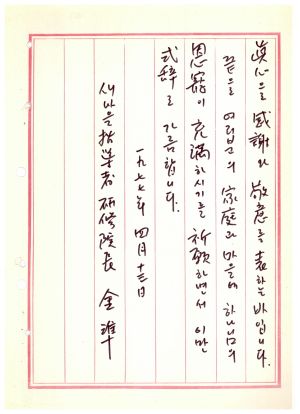 眞心으로 感謝와 敬意를 表하는 바입니다.
끝으로 여러분의 家庭과 마을에 하나님의
恩寵이 充滿하시기를 祈願하면서 이만
式辭로 가름합니다.
一九七七年 四月 十三日
새마을指導者研修院長 金準